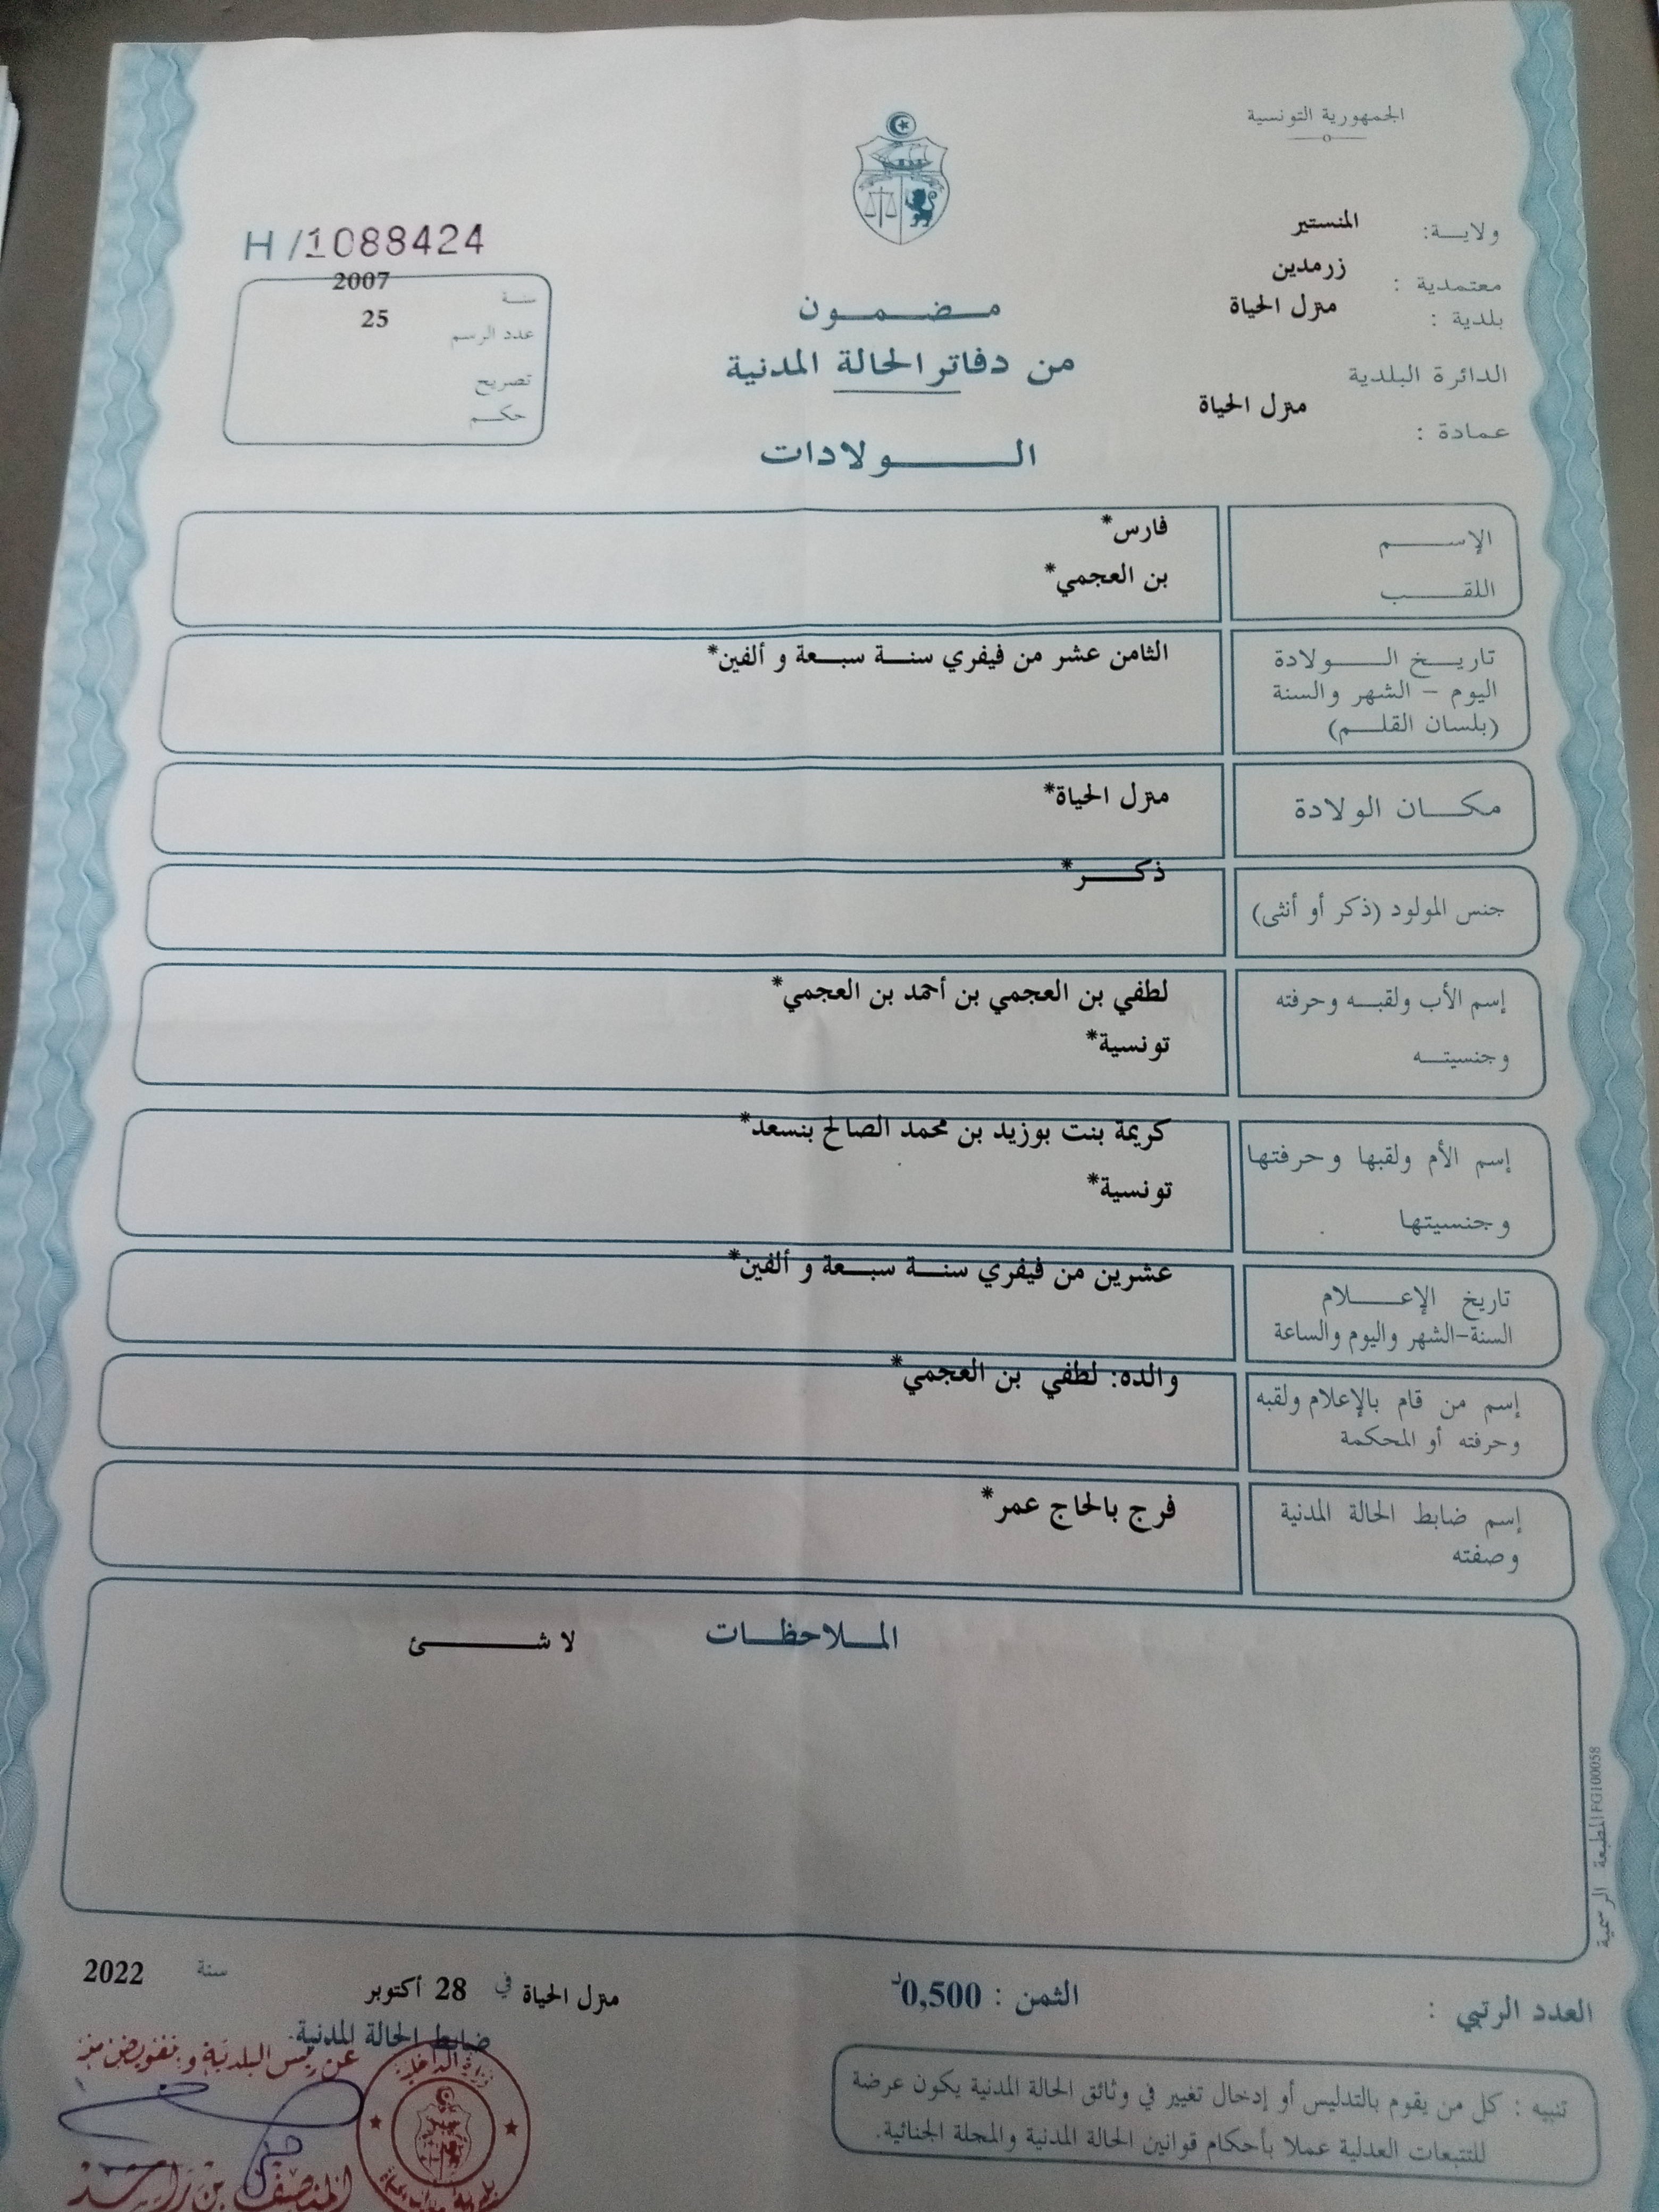 الجمهورية التونسية
ولايـة: المنستير
معتمدية : زرمدين
بلدية : منزل الحياة
الدائرة البلدية
منزل الحياة
عمادة :
H /1088424
سنة 2007
عدد الرسم 25
تصريح
حكم
مضمون
من دفاتر الحالة المدنية
الولادات
الإسم فارس*
اللقب بن العجمي*
تاريخ الولادة الثامن عشر من فيفري سنة سبعة و ألفين*
اليوم – الشهر والسنة
(بلسان القلم)
مكان الولادة منزل الحياة*
جنس المولود (ذكر أو أنثى) ذكر*
إسم الأب ولقبه وحرفته لطفي بن العجمي بن أحمد بن العجمي*
وجنسيته تونسية*
إسم الأم ولقبها وحرفتها كريمة بنت بوزيد بن محمد الصالح بنسعد*
وجنسيتها تونسية*
تاريخ الإعلام عشرين من فيفري سنة سبعة و ألفين*
السنة-الشهر واليوم والساعة
إسم من قام بالإعلام ولقبه والده: لطفي بن العجمي*
وحرفته أو المحكمة
إسم ضابط الحالة المدنية فرج بالحاج عمر*
وصفته
الملاحظات لا شئ
المطبعة الرسمية FG100058
العدد الرتبي :
الثمن : 0,500د
منزل الحياة في 28 أكتوبر سنة 2022
ضابط الحالة المدنية.
عن رئيس البلدية و بتفويض منه
وزارة الداخلية
المنصف بن راشد
تنبيه : كل من يقوم بالتدليس أو إدخال تغيير في وثائق الحالة المدنية يكون عرضة
للتتبعات العدلية عملا بأحكام قوانين الحالة المدنية والمجلة الجنائية.